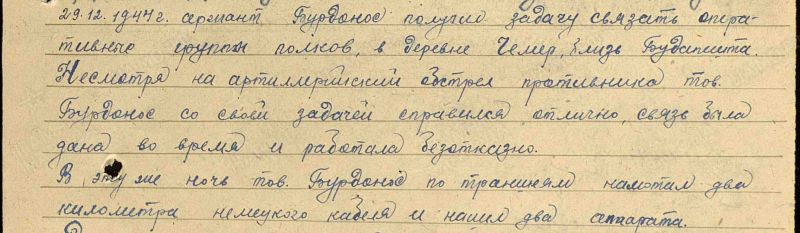 29.12.1944г. сержант Бурдонос получил задачу связать опера-
тивные группы полков, в деревне Чемер, близь Будапешта.
Несмотря на артиллерийский обстрел противника тов.
Бурдонос со своей задачей справился отлично, связь была
дана во время и работала безотказно.
В эту же ночь тов. Бурдонос по траншеям намотал два
километра немецкого кабеля и нашел два аппарата.